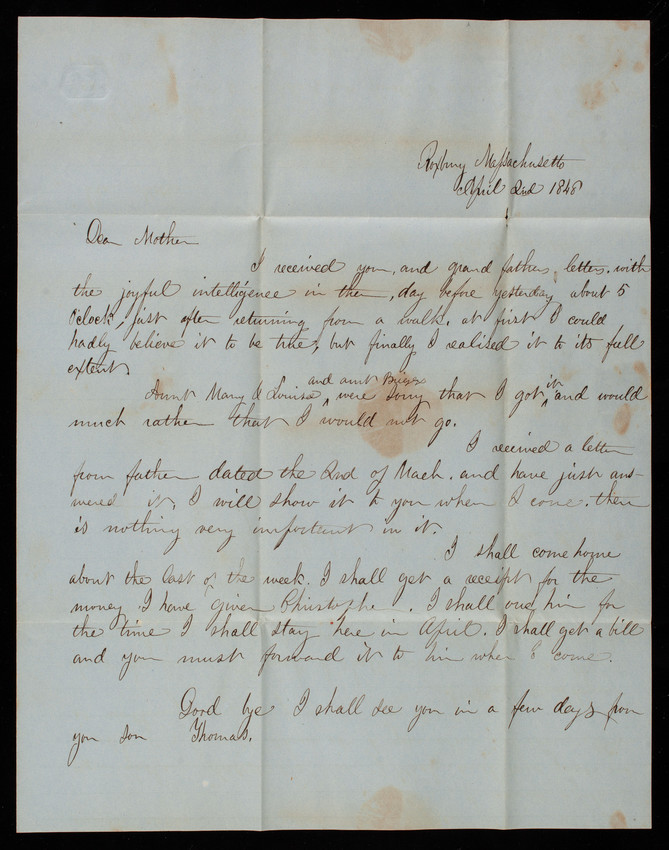 Roxbury Massachusetts
April 2nd 1848
Dear Mother
I received your, and grand fathers, letters, with
the joyful intelligence in them, day before yesterday about 5
O'clock, just after returning from a walk. at first I could
hadly believe it to be true, but finally I realised it to its full
extent.
and aunt Briggs
Aunt Mary & Louisa were sorry that I got it and would
much rather that I would not go.
I received a letter
from father dated the 2nd of Mach. and have just ans-
wered it, I will show it to you when I come. there
is nothing very important in it.
I shall come home
about the last of the week. I shall get a receipt for the
money I have given Christopher. I shall owe him for
the time I shall stay here in April. I shall get a bill
and you must forward it to him when I come.
Good bye I shall see you in a few days from
your son Thomas.